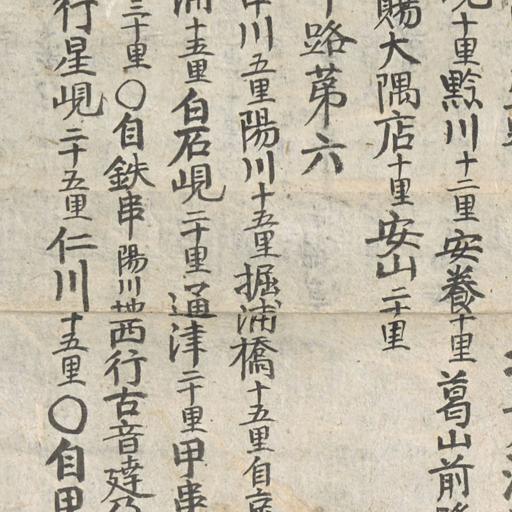 十里黔川十二里安養十里葛山前
賜大隅店十里安山二十里
路苐六
川五里陽川十五里掘浦橋十五里自
浦十五里白石峴二十里通津二十里甲串
三十里〇自鉄串陽川地西行古音
行星峴二十五里仁川十五里〇自